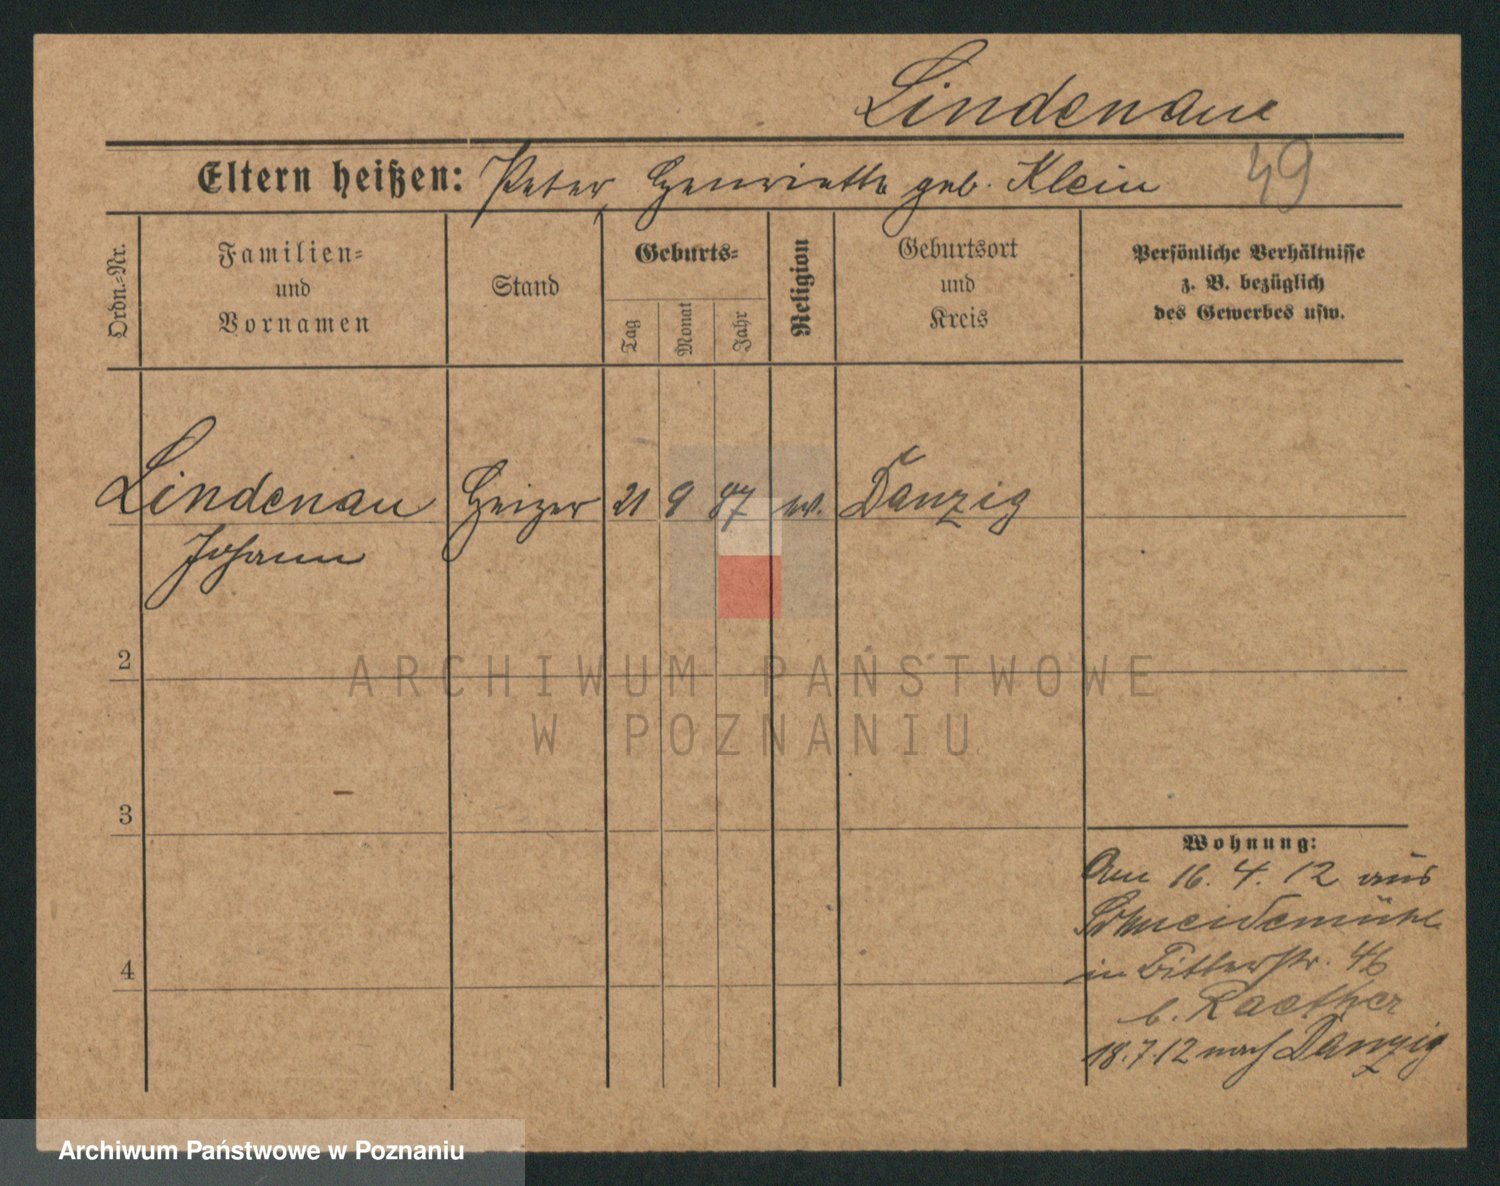 Lindenau
Eltern heißen: Peter, Henriette geb. Klein 49
Ordn.-Nr.
Familien-
und
Vornamen
Stand
Geburts-
Tag
Monat
Jahr
Religion
Geburtsort
und
Kreis
Persönliche Verhältnisse
z. B. bezüglich
des Gewerbes usw.
Lindenau Heizer 21 9 87 ev. Danzig
Johann
2
ARCHIWUM PAŃSTWOWE
W POZNANIU
3
Wohnung:
Am 16. 4. 12 aus
Schneidemühl
in Bitterstr. 46
b. Raether
4
18.7.12 nach Danzig
Archiwum Państwowe w Poznaniu